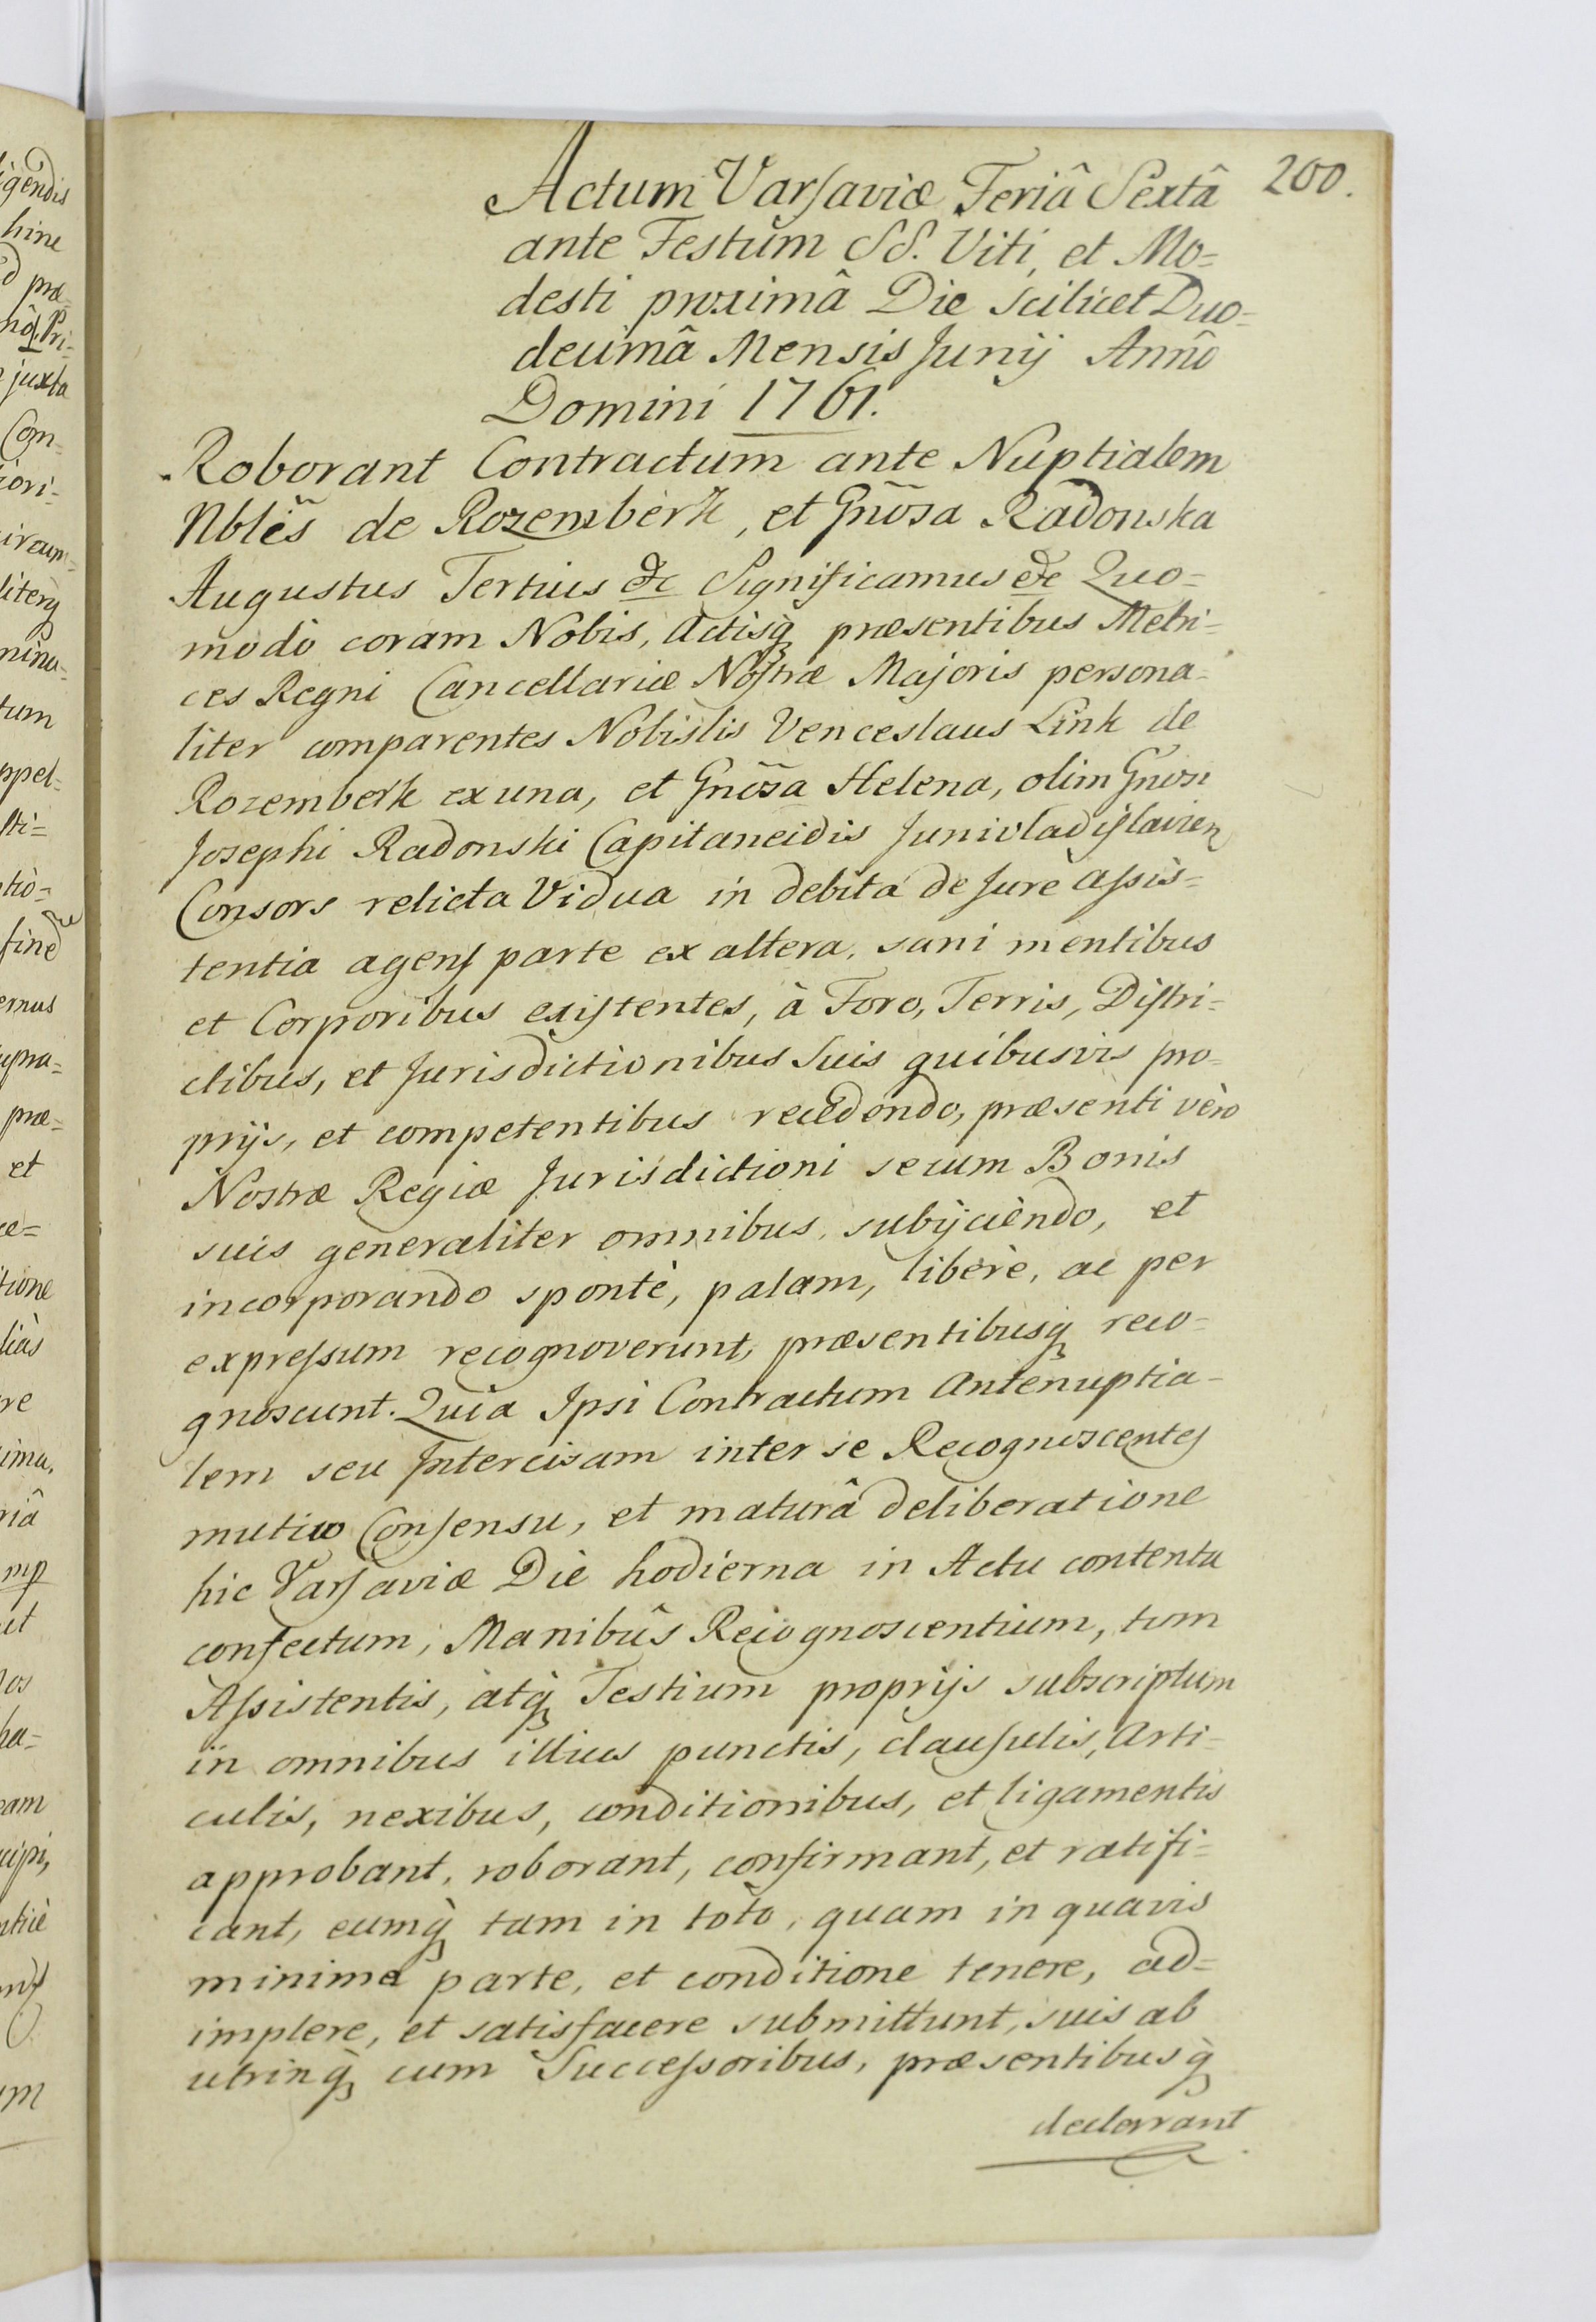 200.
Actum Varsaviæ Feriâ Sextâ
ante Festum SS. Viti, et Mo=
desti proximâ Die scilicet Duo=
decimâ Mensis Junij Anno
Domini 1761.
Roborant Contractum ante Nuptialem
Nbles de Rozemberk, et Gnosa Radonska
Augustus Tertius &c Significamus &c Quo=
modò coram Nobis, Actisq præsentibus Metri=
ces Regni Cancellariæ Nostræ Majoris persona=
liter comparentes Nobislis Venceslaus Link de
Rozemberk ex una, et Gnosa Helena, olim Gnosi
Josephi Radonski Capitaneidis Junivladislavien
Consors relicta Vidua in debita de Jure assis=
tentia agens parte ex altera, sani mentibus
et Corporibus existentes, à Foro, Terris, Distri=
ctibus, et Jurisdictionibus Suis quibusvis pro=
prijs, et competentibus recedendo, præsenti vèro
Nostræ Regiæ Jurisdictioni secum Bonis
suis generaliter omnibus, subijciendo, et
incorporando spontè, palam, liberè, ac per
expressum recognoverunt, præsentibusq reco=
gnoscunt. Quia Ipsi Contractum Antenuptia=
lem seu Intercisam inter se Recognoscentes
mutuo Consensu, et maturâ deliberatione
hic Varsaviæ Die hodierna in Actu contenta
confectum, Manibûs Recognoscentium, tum
Assistentis, atq Testium proprijs subscriptum
in omnibus illius punctis, clausulis, Arti=
culis, nexibus, conditionibus, et ligamentis
approbant, roborant, confirmant, et ratifi=
cant, eumq tam in toto, quam in quavis
minima parte, et conditione tenere, ad=
implere, et satisfacere submittunt, suis ab
utrinq cum Successoribus, præsentibusq
declarant